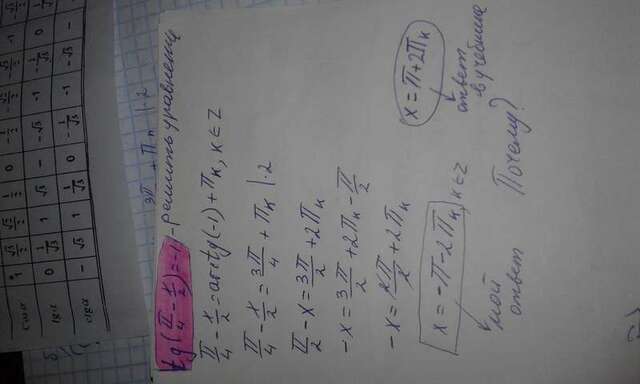 cosα 1 √3/2 √2/2 1/2 0 -1/2 -√2/2 -√3/2 -1
tgα 0 1/√3 1 √3 - -√3 -1 -1/√3 0
ctgα - √3 1 1/√3 0 -1/√3 -1 -√3 -
3π/ + πn |·2
tg(π/4 - x/2) = -1 - решить уравнение
π/4 - x/2 = arctg(-1) + πk, k ∈ Z
π/4 - x/2 = 3π/4 + πk |·2
π/2 - x = 3π/2 + 2πk
-x = 3π/2 + 2πk - π/2
-x = 2π/2 + 2πk
x = -π - 2πk, k ∈ Z
мой ответ
x = π + 2πk
ответ в учебнике
Почему?